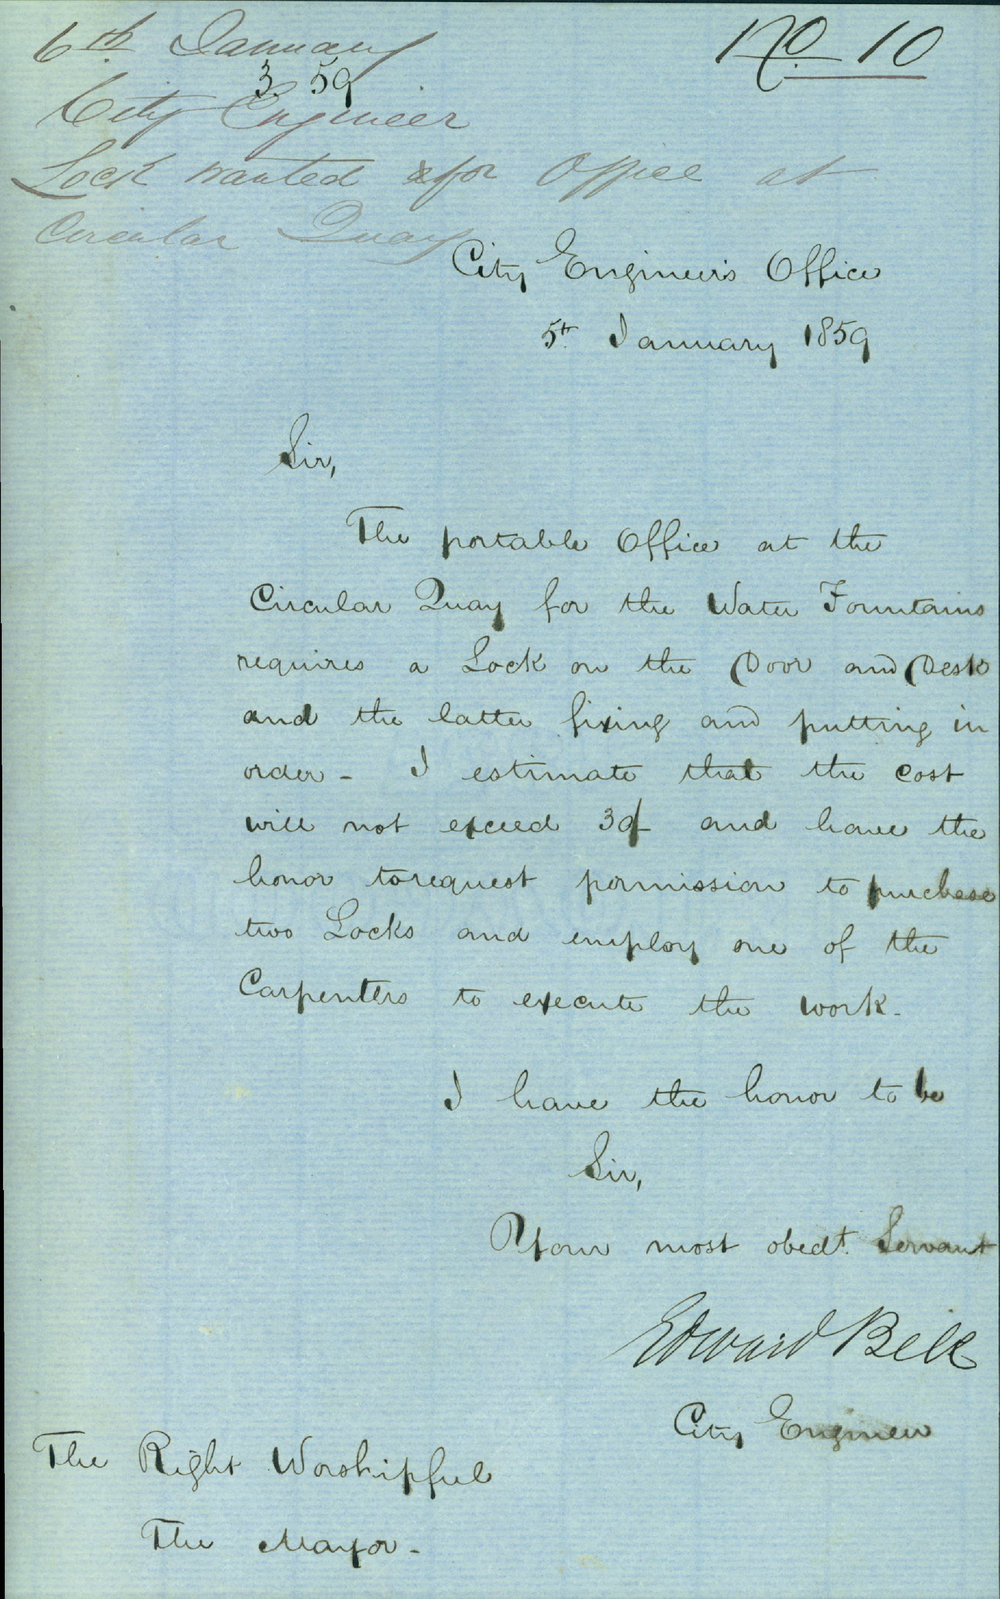 6th January
3 59
City Engineer
Lock wanted for Office at
Circular Quay
No 10
City Engineer's Office
5th January 1859
Sir,
The portable Office at the
Circular Quay for the Water Fountains
requires a Lock on the Door and Desk
and the latter fixing and putting in
order - I estimate that the cost
will not exceed 30/- and have the
honor to request permission to purchase
two Locks and employ one of the
Carpenters to execute the work -
I have the honor to be
Sir,
Your most obedt. Servant
Edward Bell
City Engineer
The Right Worshipful
The Mayor -